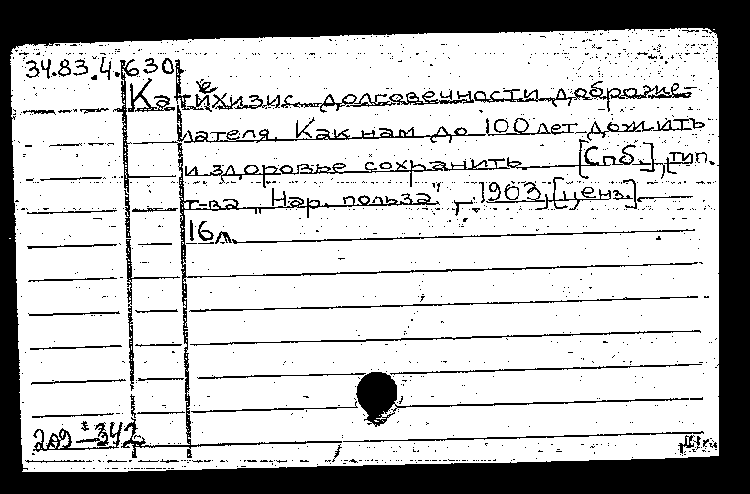 34.83.4.630.
Катехизис долговечности доброже-
лателя. Как нам до 100 лет дожить
и здоровье сохранить. [Спб.], тип.
т-ва „Нар. польза", 1903, [ценз.].
16 л.
209-342